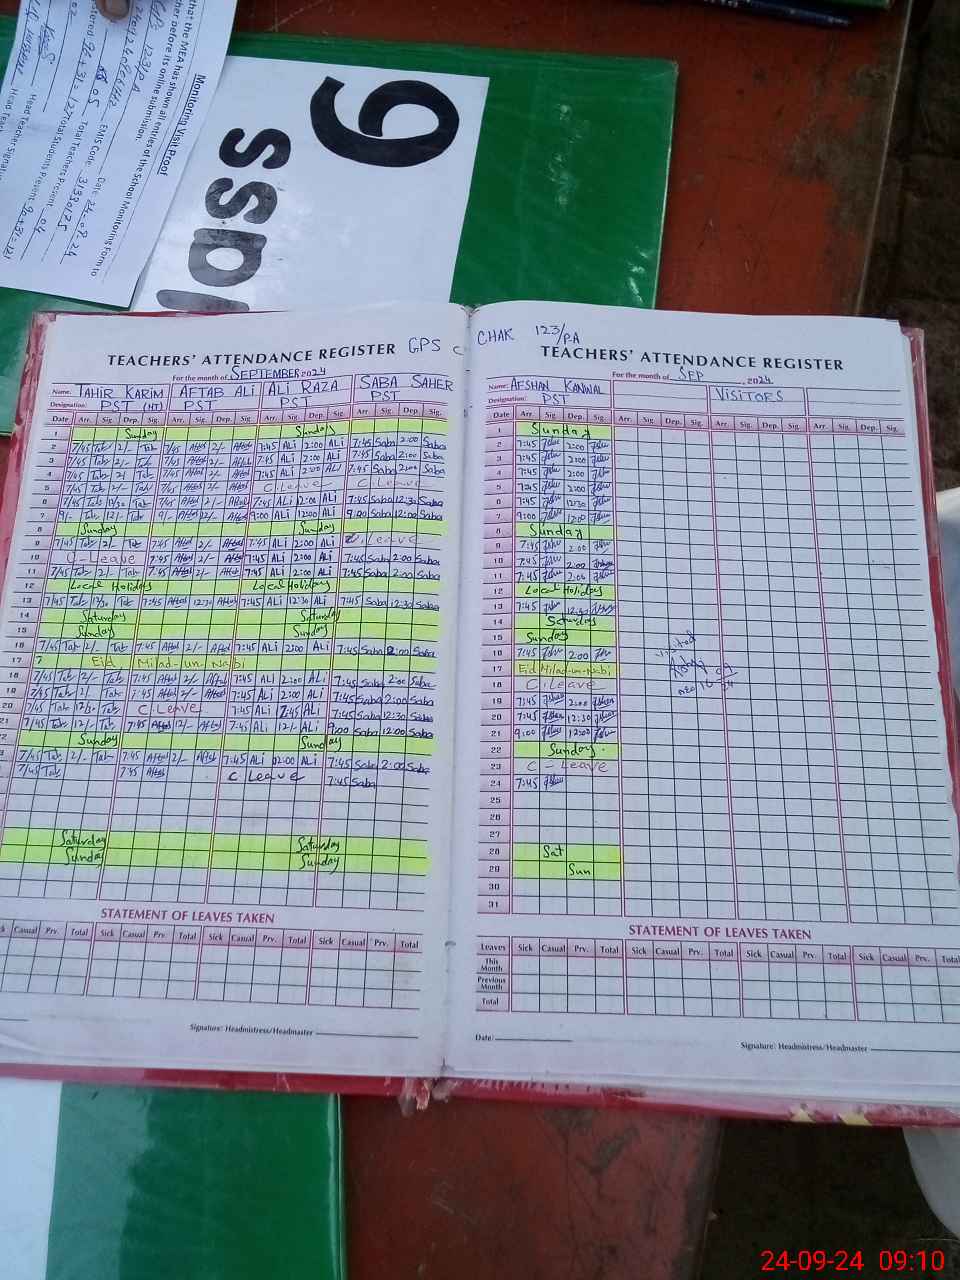 that the MEA has shown all entries of the School Monitoring Form to
before its online submission.
Monitoring Visit Proof
EMIS Code: 31330175
Date 24-09-24
Total Teachers Present 04
Total Students Present: 90+31=121
Head Teacher Signature
9
lass
GPS CHAK 123/P.A
TEACHERS' ATTENDANCE REGISTER
For the month of SEPTEMBER 2024
Name: TAHIR KARIM AFTAB ALI ALI RAZA SABA SAHER
Designation: PST (HT) PST PST PST
Date Arr. Sig. Dep. Sig. Arr. Sig. Dep. Sig. Arr. Sig. Dep. Sig. Arr. Sig. Dep. Sig.
1 Sunday Sunday
2 7/45 Tah 2/- Tah 7/45 Aftab 2/- Aftab 7:45 ALi 2:00 ALi 7:45 Saba 2:00 Saba
3 7/45 Tah 2/- Tah 7/45 Aftab 2/- Aftab 7:45 ALi 2:00 ALi 7:45 Saba 2:00 Saba
4 7/45 Tah 2/- Tah 7/45 Aftab 2/- Aftab 7:45 ALi 2:00 ALi 7:45 Saba 2:00 Saba
5 7/45 Tah 2/- Tah 7/45 Aftab 2/- Aftab C. Leave C. Leave
6 7/45 Tah 12/30 Tah 7/45 Aftab 2/- Aftab 7:45 ALi 12:00 ALi 7:45 Saba 12:30 Saba
7 9/- Tah 12/- Tah 9/- Aftab 2/- Aftab 9:00 ALi 12:00 ALi 9:00 Saba 12:00 Saba
8 Sunday Sunday
9 7/45 Tah 2/- Tah 7:45 Aftab 2/- Aftab 7:45 ALi 2:00 ALi C. Leave
10 Leave 7:45 Aftab 2/- Aftab 7:45 ALi 2:00 ALi 7:45 Saba 2:00 Saba
11 7/45 Tah 2/- Tah 7:45 Aftab 2/- Aftab 7:45 ALi 2:00 ALi 7:45 Saba 2:00 Saba
12 Local Holidays Local Holidays
13 7/45 Tah 12/30 Tah 7:45 Aftab 12:30 Aftab 7:45 ALi 12:30 ALi 7:45 Saba 12:30 Saba
14 Saturday Saturday
15 Sunday Sunday
16 7/45 Tah 2/- Tah 7:45 Aftab 2/- Aftab 7:45 ALi 2:00 ALi 7:45 Saba 2:00 Saba
17 Eid Milad-un-Nabi
18 7/45 Tah 2/- Tah 7:45 Aftab 2/- Aftab 7:45 ALi 2:00 ALi 7:45 Saba 2:00 Saba
19 7/45 Tah 2/- Tah 7:45 Aftab 2/- Aftab 7:45 ALi 2:00 ALi 7:45 Saba 2:00 Saba
20 7/45 Tah 12/30 Tah C Leave 7:45 ALi 7:45 ALi 7:45 Saba 12:30 Saba
21 7/45 Tah 12/- Tah 7:45 Aftab 12/- Aftab 7:45 ALi 12/- ALi 9:00 Saba 12:00 Saba
2 Sunday Sunday
3 7/45 Tah 2/- Tah 7:45 Aftab 2/- Aftab 7:45 ALi 02:00 ALi 7:45 Saba 2:00 Saba
7/45 Tah 7:45 Aftab C Leave 7:45 Saba
Saturday Saturday
Sunday Sunday
STATEMENT OF LEAVES TAKEN
Casual Prv. Total Sick Casual Prv. Total Sick Casual Prv. Total Sick Casual Prv. Total
Signature: Headmistress/Headmaster
TEACHERS' ATTENDANCE REGISTER
For the month of SEP, 2024
Name: AFSHAN KANWAL VISITORS
Designation: PST
Date Arr. Sig. Dep. Sig. Arr. Sig. Dep. Sig. Arr. Sig. Dep. Sig. Arr. Sig.
1 Sunday
2 7:45 2:00
3 7:45 2:00
4 7:45 2:00
5 7:45 2:00
6 7:45 12:30
7 9:00 12:00
8 Sunday
9 7:45 2:00
10 7:45 2:00
11 7:45 2:00
12 Local Holidays
13 7:45 12:30
14 Saturday
15 Sunday
16 7:45 2:00 visited
17 Eid Milad-un-Nabi
18 C. Leave
19 7:45 2:00
20 7:45 12:30
21 9:00 12:00
22 Sunday
23 C - Leave
24 7:45
25
26
27
28 Sat
29 Sun
30
31
STATEMENT OF LEAVES TAKEN
Leaves Sick Casual Prv. Total Sick Casual Prv. Total Sick Casual Prv. Total Sick Casual Prv. Total
This Month
Previous Month
Total
Date:
Signature: Headmistress/Headmaster
24-09-24 09:10